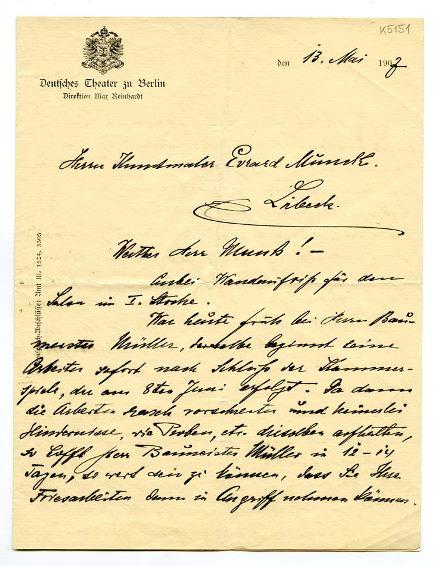 K5151
Deutsches Theater zu Berlin
Direktion Max Reinhardt
den 13. Mai 1907
Herrn Kunstmaler Evvard Munck.
Lübeck.
Werther Herr Munk! –
Anbei Wandaufriss für den
Salon im I. Stocke.
War heute früh bei Herrn Bau-
meister Müller, derselbe beginnt seine
Arbeiten sofort nach Schluss der Kammer-
spiele, der am 8ten Juni erfolgt. Da dann
die Arbeiten rasch vorschreiten und keinerlei
Hindernisse, wie Proben, etc. dieselben aufhalten,
so hofft Herr Baumeister Müller in 12–14
Tagen, so weit sein zu können, dass Sie Ihre
Friesarbeiten dann in Angriff nehmen können.
Amt III, 1524, 5505